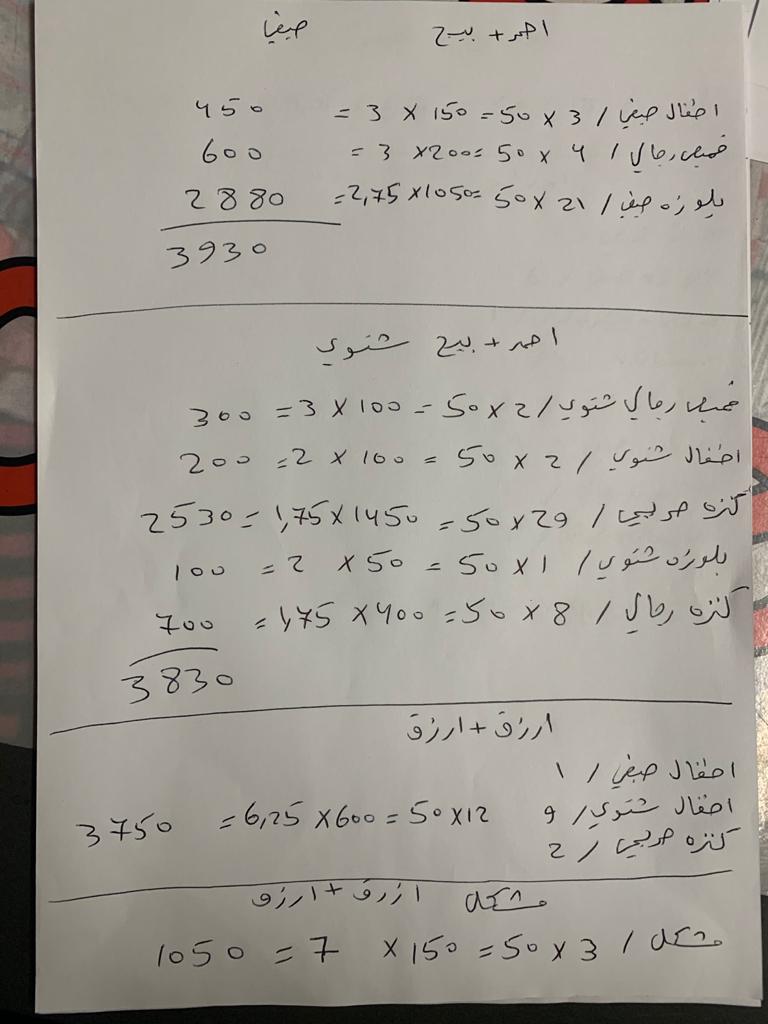 احمر + بيج صيفي
اطفال صيفي / 3 × 50 = 150 × 3 = 450
قميص رجالي / 4 × 50 = 200 × 3 = 600
بلوزه صيفي / 21 × 50 = 1050 × 2,75 = 2880
3930
احمر + بيج شتوي
قميص رجالي شتوي / 2 × 50 = 100 × 3 = 300
اطفال شتوي / 2 × 50 = 100 × 2 = 200
كنزه حريمي / 29 × 50 = 1450 × 1,75 = 2530
بلوزه شتوي / 1 × 50 = 50 × 2 = 100
كنزه رجالي / 8 × 50 = 400 × 1,75 = 700
3830
ارزق + ارزق
اطفال صيفي / 1
اطفال شتوي / 9
12 × 50 = 600 × 6,25 = 3750
كنزه حريمي / 2
مشكله ازرق + ارزق
مشكل / 3 × 50 = 150 × 7 = 1050